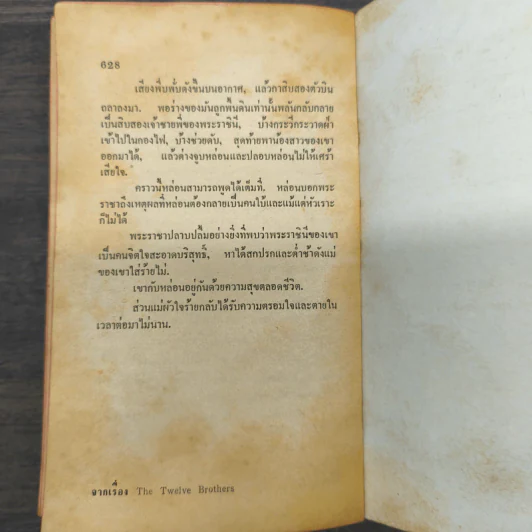 628
เสียงพึ่บพั่บดังขึ้นบนอากาศ, แล้วกาสิบสองตัวบิน
ถลาลงมา. พอร่างของมันถูกพื้นดินเท่านั้นพลันกลับกลาย
เป็นสิบสองเจ้าชายพี่ของพระราชินี, บ้างกระวีกระวาดฝ่า
เข้าไปในกองไฟ, บ้างช่วยดับ, สุดท้ายพาน้องสาวของเขา
ออกมาได้, แล้วต่างจูบหล่อนและปลอบหล่อนไม่ให้เศร้า
เสียใจ.
คราวนี้หล่อนสามารถพูดได้เต็มที่, หล่อนบอกพระ
ราชาถึงเหตุผลที่หล่อนต้องกลายเป็นคนใบ้และแม้แต่หัวเราะ
ก็ไม่ได้
พระราชาปลาบปลื้มอย่างยิ่งที่พบว่าพระราชินีของเขา
เป็นคนจิตใจสะอาดบริสุทธิ์, หาได้สกปรกและต่ำช้าดังแม่
ของเขาใส่ร้ายไม่.
เขากับหล่อนอยู่กันด้วยความสุขตลอดชีวิต.
ส่วนแม่ผัวใจร้ายกลับได้รับความตรอมใจและตายใน
เวลาต่อมาไม่นาน.
จากเรื่อง The Twelve Brothers